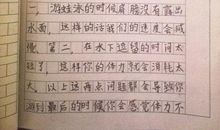 游蛙泳的时候肩膀没有露出
水面，这样的话我们的速度会减
慢。第二，在水下边留的时间太
长了，这样你的体力就会消耗太
大。以上这两点问题都会导致你
游到最后的时候你会感觉体力不